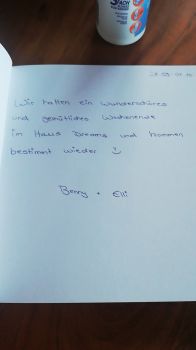 3FACH
Wir hatten ein wunderschönes
und gemütliches Wochenende
im Haus Dreams und kommen
bestimmt wieder
Benny + Elli